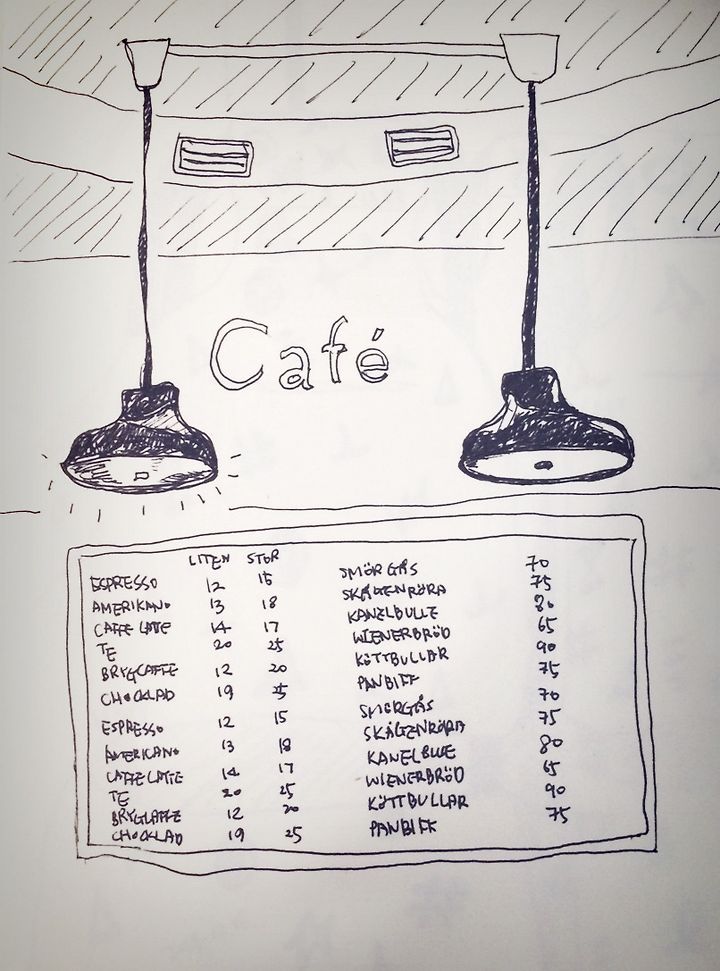 Café
LITEN STOR
ESPRESSO 12 15
AMERIKANO 13 18
CAFFE LATTE 14 17
TE 20 25
BRYGCAFFE 12 20
CHOCKLAD 19 25
ESPRESSO 12 15
AMERICANO 13 18
CAFFE LATTE 14 17
TE 20 25
BRYGCAFFE 12 20
CHOCKLAD 19 25
SMÖRGÅS 70
SKÅGENRÖRA 75
KANELBULLE 80
WIENERBRÖD 65
KÖTTBULLAR 90
PANBIFF 75
SMÖRGÅS 70
SKÅGENRÖRA 75
KANELBULLE 80
WIENERBRÖD 65
KÖTTBULLAR 90
PANBIFF 75